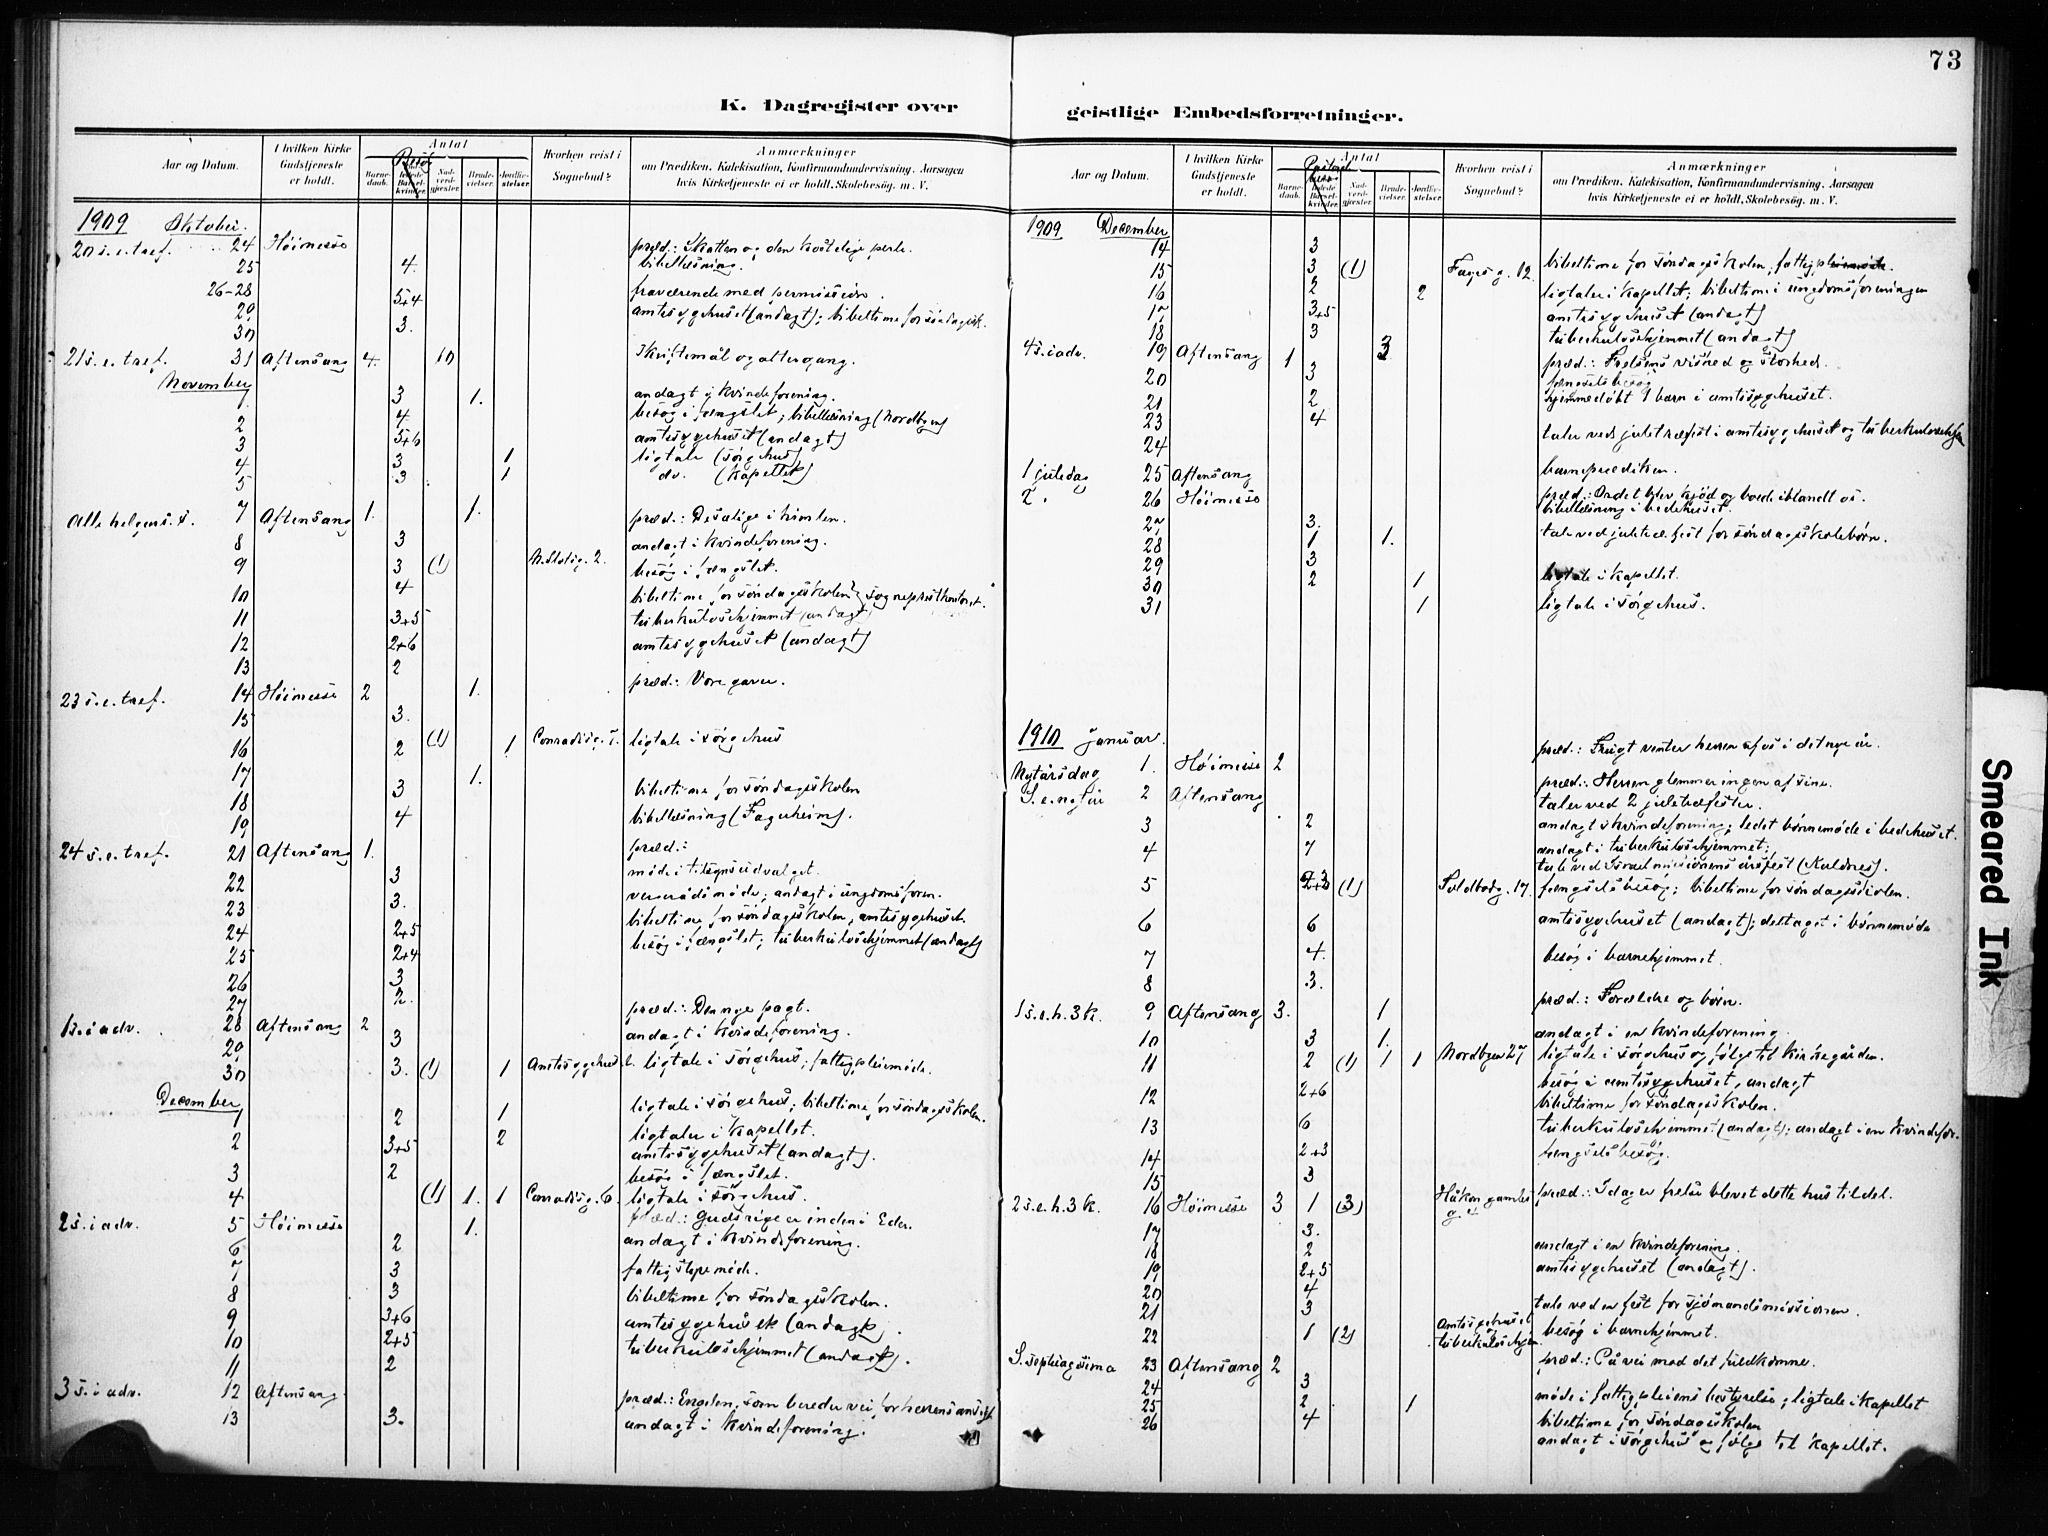 73
K. Dagregister over geistlige Embedsforretninger.
Aar og Datum. | I hvilken Kirke Gudstjeneste er holdt. | Antal | Barnedaab. | Besøg | Nadverdgjester. | Brudevielser. | Jordfæstelser. | Hvorhen reist i Sognebud? | Anmærkninger om Prædiken, Katekisation, Konfirmandundervisning, Aarsagen hvis Kirketjeneste ei er holdt, Skolebesøg. m. V.
1909 Oktober.
20 s.e. tref. 24 Høimesse præd.: Skatten og den kostelige perle.
25 4. bibellæsning.
26-28 fraværende med permission.
29 5+4 amtssygehuset (andagt); bibeltime for søndagssk.
30 3.
21 s.e. tref. 31 Aftensang 4. 10 Skriftemål og altergang.
November
1 3 1. andagt i kvindeforening.
2 4 besøg i fængslet; bibellæsning (Nordbyen)
3 5+6 amtssygehuset (andagt)
4 3 1 ligtale (sørgehus)
5 3 1 do. (kapellet)
Alle helgens s. 7 Aftensang 1. 1. præd.: De salige i himlen.
8 3 andagt i kvindeforening.
9 3 (1) besøg i fængslet.
10 4 bibeltime for søndagsskolen, sogneprestkontoret.
11 3+5 tuberkuloshjemmet (andagt)
12 2+6 amtssygehuset (andagt)
13 2
23 s.e. tref. 14 Høimesse 2 1. præd.: Vore gaver.
15 3.
16 2 (1) 1 Conradisg. 5. ligtale i sørgehus
17 1.
18 3 bibeltime for søndagsskolen
19 4 bibellæsning (Fagerheim).
24 s.e. tref. 21 Aftensang 1. præd.:
22 3 møde i tilsynsudvalget.
23 3. vergerådsmøde; andagt i ungdomsforen.
24 2+5 bibeltime for søndagsskolen, amtssygehuset.
25 2+4 besøg i fængslet; tuberkuloshjemmet (andagt)
26 3
27 2.
1 s. i adv. 28 Aftensang 2 præd.: Den nye pagt.
29 3 andagt i kvindeforening.
30 3. (1) 1 Amtssygehuset. ligtale i sørgehus; fattigpleiemøde.
December
1 2 1 ligtale i sørgehus; bibeltime for søndagsskolen.
2 3+5 2 ligtaler i kapellet. amtssygehuset (andagt).
3 2 besøg i fængslet.
4 (1) 1. 1 Conradisg. 6. ligtale i sørgehus.
2 s. i adv. 5 Høimesse 1. præd.: Guds rige er inden i Eder.
6 2 andagt i kvindeforening.
7 3 møde.
8 3 bibeltime for søndagsskolen.
9 3+6 amtssygehuset (andagt).
10 2+5 tuberkuloshjemmet (andagt).
11 2
3 s. i adv. 12 Aftensang. præd.: Engelen, som bereder vei for herrens ansigt
13 3. andagt i kvindeforening.
Aar og Datum. | I hvilken Kirke Gudstjeneste er holdt. | Antal | Barnedaab. | Nadverdgjester. | Brudevielser. | Jordfæstelser. | Hvorhen reist i Sognebud? | Anmærkninger om Prædiken, Katekisation, Konfirmandundervisning, Aarsagen hvis Kirketjeneste ei er holdt, Skolebesøg. m. V.
1909 December
14 3
15 3 (1) 12. bibeltime for søndagsskolen,
16 2 2 ligtaler i kapellet; bibeltime i ungdomsforeningen
17 3+5 amtssygehuset (andagt)
18 3 tuberkuloshjemmet (andagt)
4 s. i adv. 19 Aftensang 1 3 præd.: Frelsens vished og storhed.
20 3 fængselsbesøg
21 2 hjemmedøbt 1 barn i amtssygehuset.
23 4
24 taler ved juletræfest i amtssygehuset og tuberkuloshjem
1 juledag 25 Aftensang barneprædiken.
2 . 26 Høimesse præd.: Ordet blev kjød og boede iblandt os.
27 3. bibellæsning i bedehuset.
28 1 1. tale ved juletræfest for søndagsskolebørn.
29 3
30 2 1 ligtale i kapellet.
31 1 ligtale i sørgehus.
1910 Januar.
Nytårsdag 1. Høimesse 2 præd.: Frugt venter herren af os i det nye år.
S.e. nytår 2 Aftensang præd.: Herren glemmer ingen af sine.
taler ved 2 juletræfester.
3 2 andagt i kvindeforening; ledet børnemøde i bedehuset.
4 7 andagt i tuberkuloshjemmet;
tale ved Israelmissionens årsfest (Kuldnes).
5 2+3 (1) 17. fængselsbesøg; bibeltime for søndagsskolen.
6 6 amtssygehuset (andagt); deltaget i børnemøde
7 4. besøg i barnehjemmet.
8 3.
1 s.e.h.3k. 9 Aftensang 3. 1 præd.: Forældre og børn.
10 3 1. andagt i en kvindeforening.
11 2 (1) 1 1 Nordbyen 27 ligtale i sørgehus og følge til kirkegården.
12 2+6 besøg i amtssygehuset, andagt
bibeltime for søndagsskolen.
13 6 tuberkuloshjemmet (andagt); andagt i en kvindefor.
14 2+3 fængselsbesøg.
15 3
2 s.e.h.3k. 16 Høimesse 3 1 (3) Håkon gamles g. præd.: Idag er frelse blevet dette hus til del.
17 3.
18 2 andagt i en kvindeforening.
19 2+5 amtssygehuset (andagt).
20 4
21 3 tale ved en fest for sjømandsmissionen.
22 1 (2) Amtssygehuset tuberkuloshjem. besøg i barnehjemmet.
S. septuagesima 23 Aftensang 2 præd.: På vei mod det fuldkomne.
24 3
25 2 1 møde i fattigpleiens bestyrelse; ligtale i kapellet
26 4 bibeltime for søndagsskolen
andagt i sørgehus og følge til kapellet.
Smeared Ink